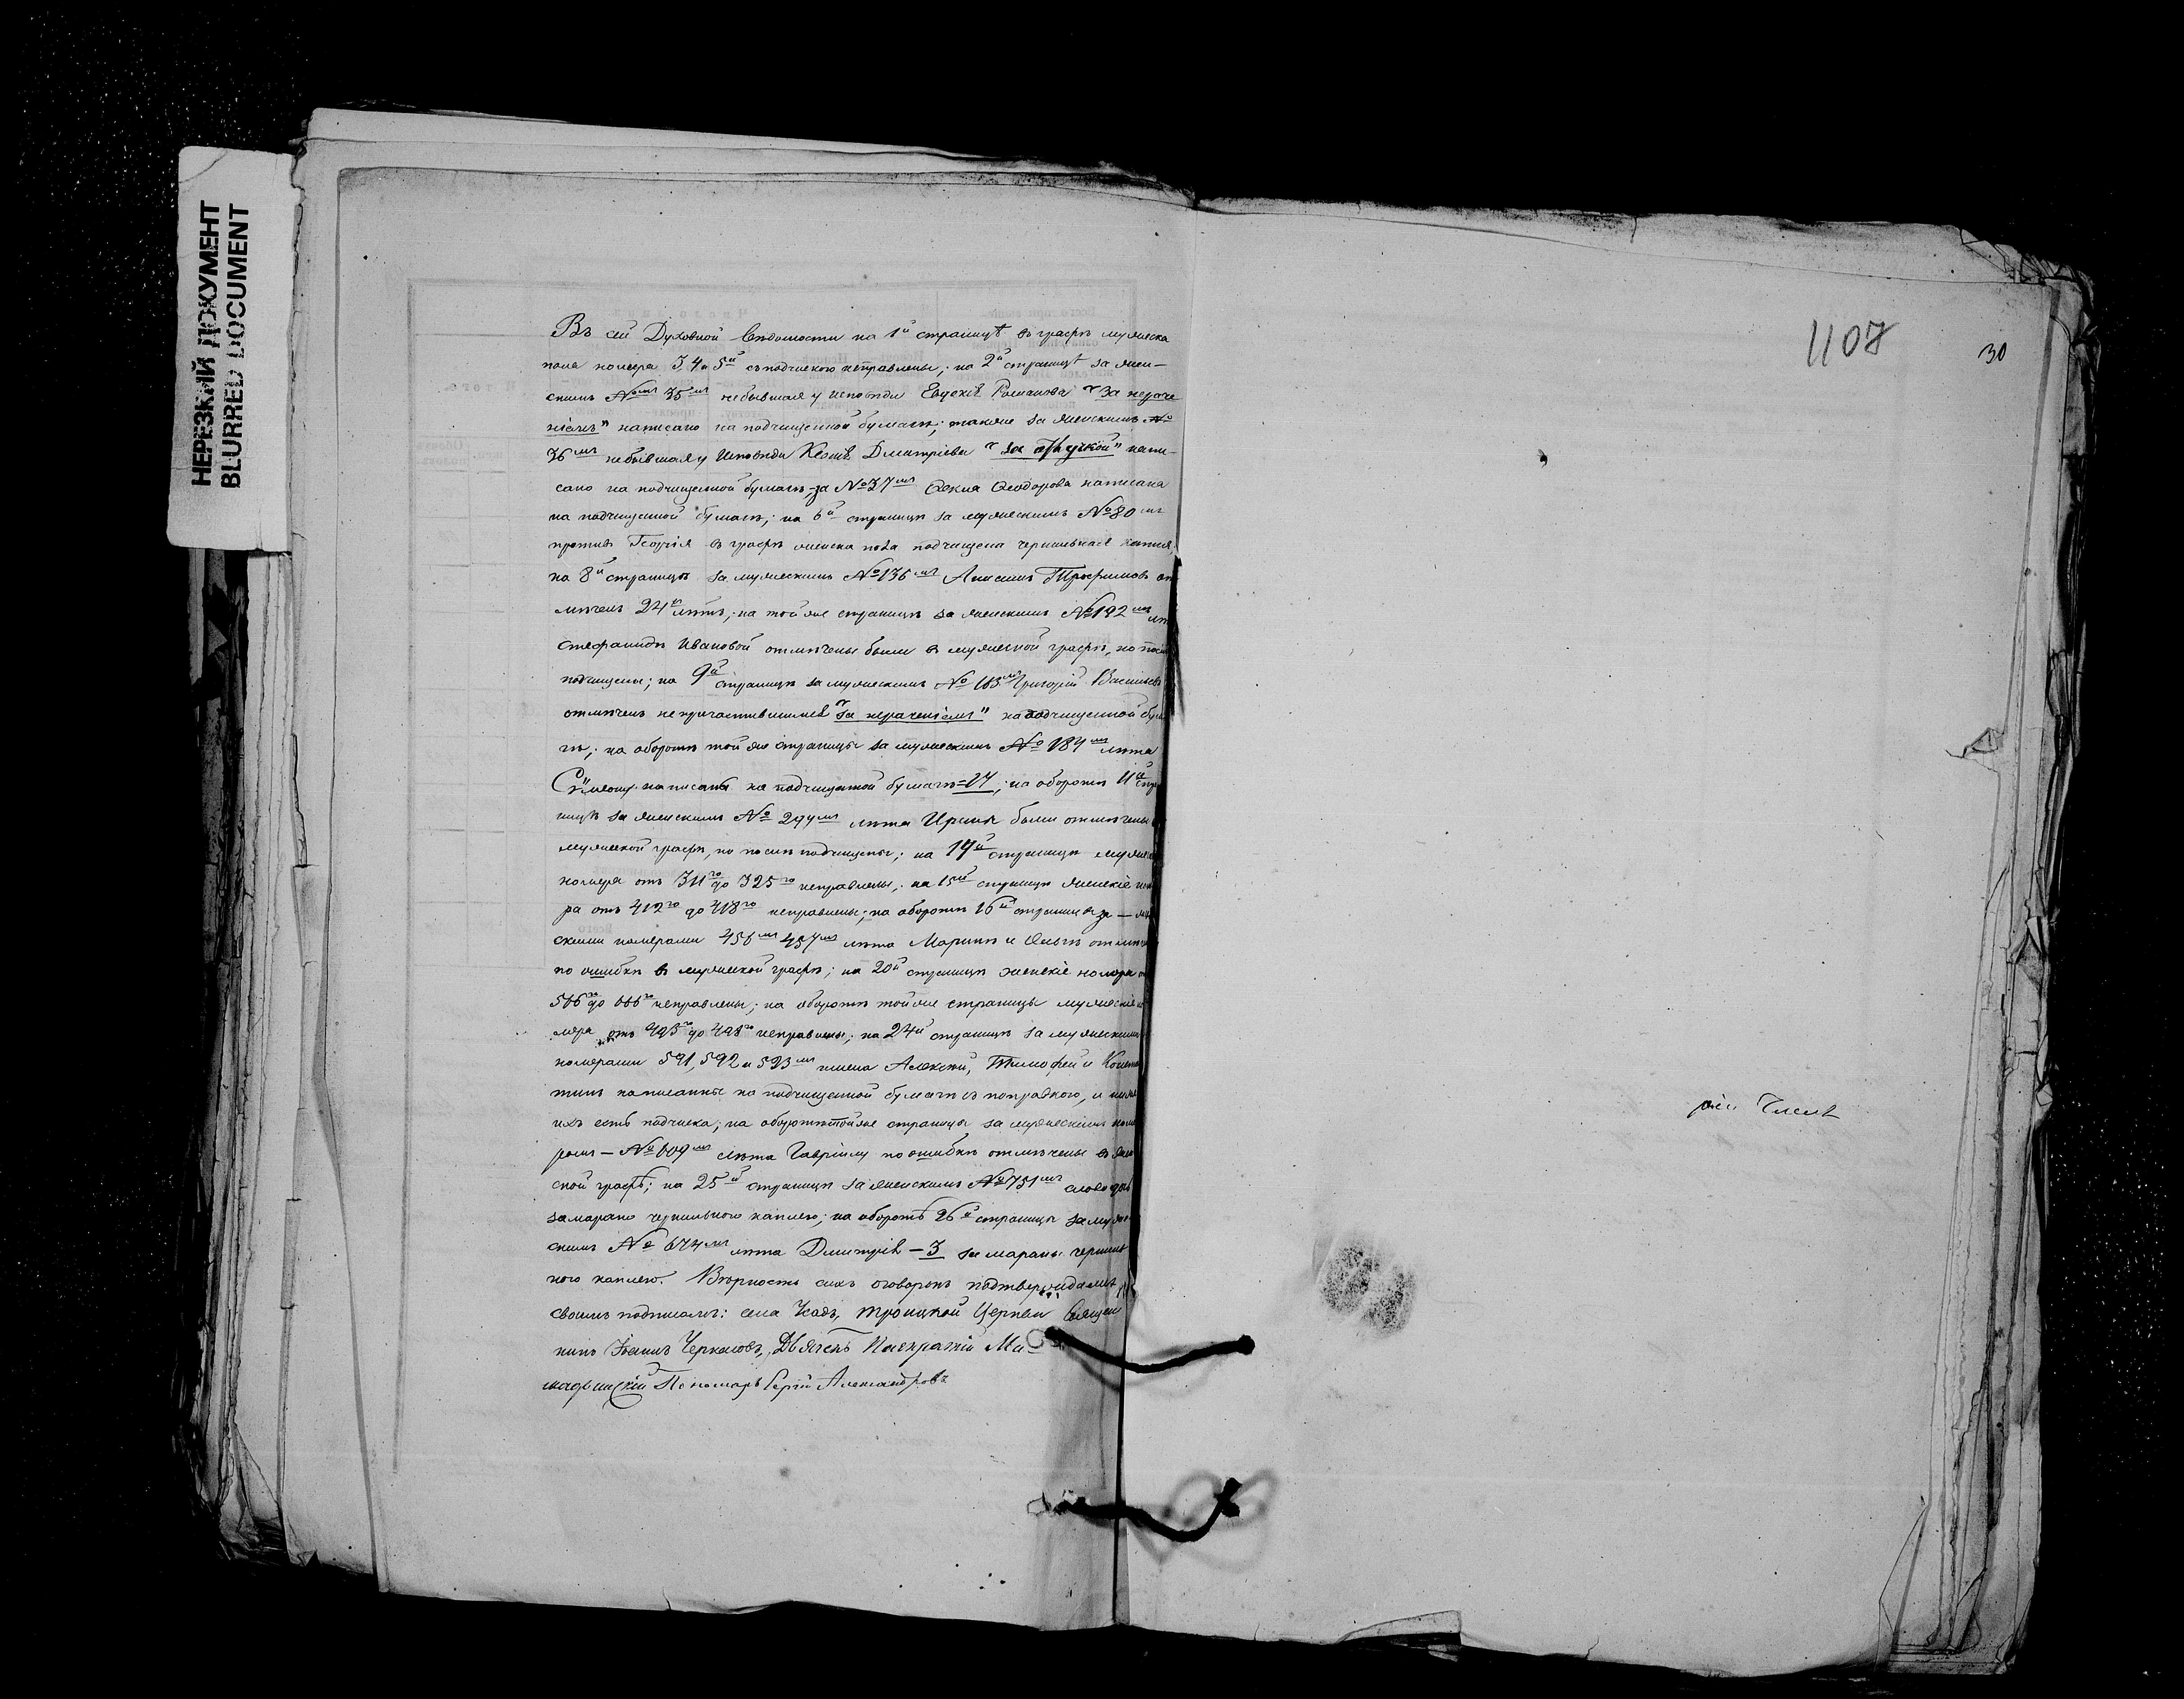 НЕРЕЗКИЙ ДОКУМЕНТ
BLURRED DOCUMENT
Въ сей Духовной Вѣдомости на 1й страницѣ въ графѣ мужеска
пола номера 3, 4 и 5й съ подчисткою исправлены; на 2й страницѣ за жен-
скимъ №мъ 35мъ небывшая у исповѣди Евдокія Романова "за нераче
ніемъ" написано на подчищенной бумагѣ; также за женскимъ №
36мъ небывшая у Исповѣди Ксенія Дмитріева "за отлучкой" напи-
сано на подчищенной бумагѣ, за №37мъ Ѳекла Ѳеодорова написана
на подчищенной бумагѣ; на 6й страницѣ за мужескимъ №80мъ
противъ Георгія въ графѣ женска пола подчищена чернильная капля,
на 8й страницѣ за мужескимъ №136мъ Анисимъ Трофимовъ от
мѣченъ 24 лѣтъ; на той же странцѣ за женскимъ №192мъ лѣ
Стефанидѣ Ивановой отмѣчены были въ мужеской графѣ, но послѣ
подчищены; на 9й страницѣ за мужескимъ № 163мъ Григорій Васильевъ
отмѣченъ непричастившимся "за нераченіемъ" на подчищенной бума
гѣ; на оборотѣ той же страницы за мужескимъ № 184мъ лѣта
написаны на подчищенной бумагѣ = 27; на оборотѣ 11й стра
ницѣ за женскимъ № 294мъ лѣта Ирины были отмѣчены
мужеской графѣ, но послѣ подчищены; на 14й страницѣ муже
номера отъ 311го до 325го исправлены; на 15й страницѣ женскіе но
ра отъ 412го до 418го исправлены; на оборотѣ 16й страницы за — же
скими номерами 456мъ 457мъ лѣта Маринѣ и отмѣче
по ошибкѣ въ мужеской графѣ; на 20й страницѣ женскіе номера
566го до 666го исправлены; на оборотѣ той же страницы мужескіе
мера отъ 493го до 498го исправлены; на 24й страницѣ за мужескими
номерами 591, 592 и 593мъ имена Алексѣй, Тимофей и Конста
тинъ написанны на подчищенной бумагѣ съ поправкою, и
ихъ есть подчистка; на оборотѣ той же страницы за мужескимъ
ромъ — № 609мъ лѣта Гавріилу по ошибкѣ отмѣчены въ жен
ской графѣ; на 25й страницѣ за женскимъ №751мъ слово
замарано чернильною каплею; на оборотѣ 26й страницы за муже
скимъ № 674мъ лѣта Дмитрія — 3 замараны черниль
ною каплею. Вѣрность сихъ оговорокъ подтверждаемъ
своимъ подписомъ: села Усадъ, Троицкой Церкви Священ
никъ Іоаннъ Черкасовъ, Дьячекъ Панкратій
Пономарь Сергій Александровъ
1107
30